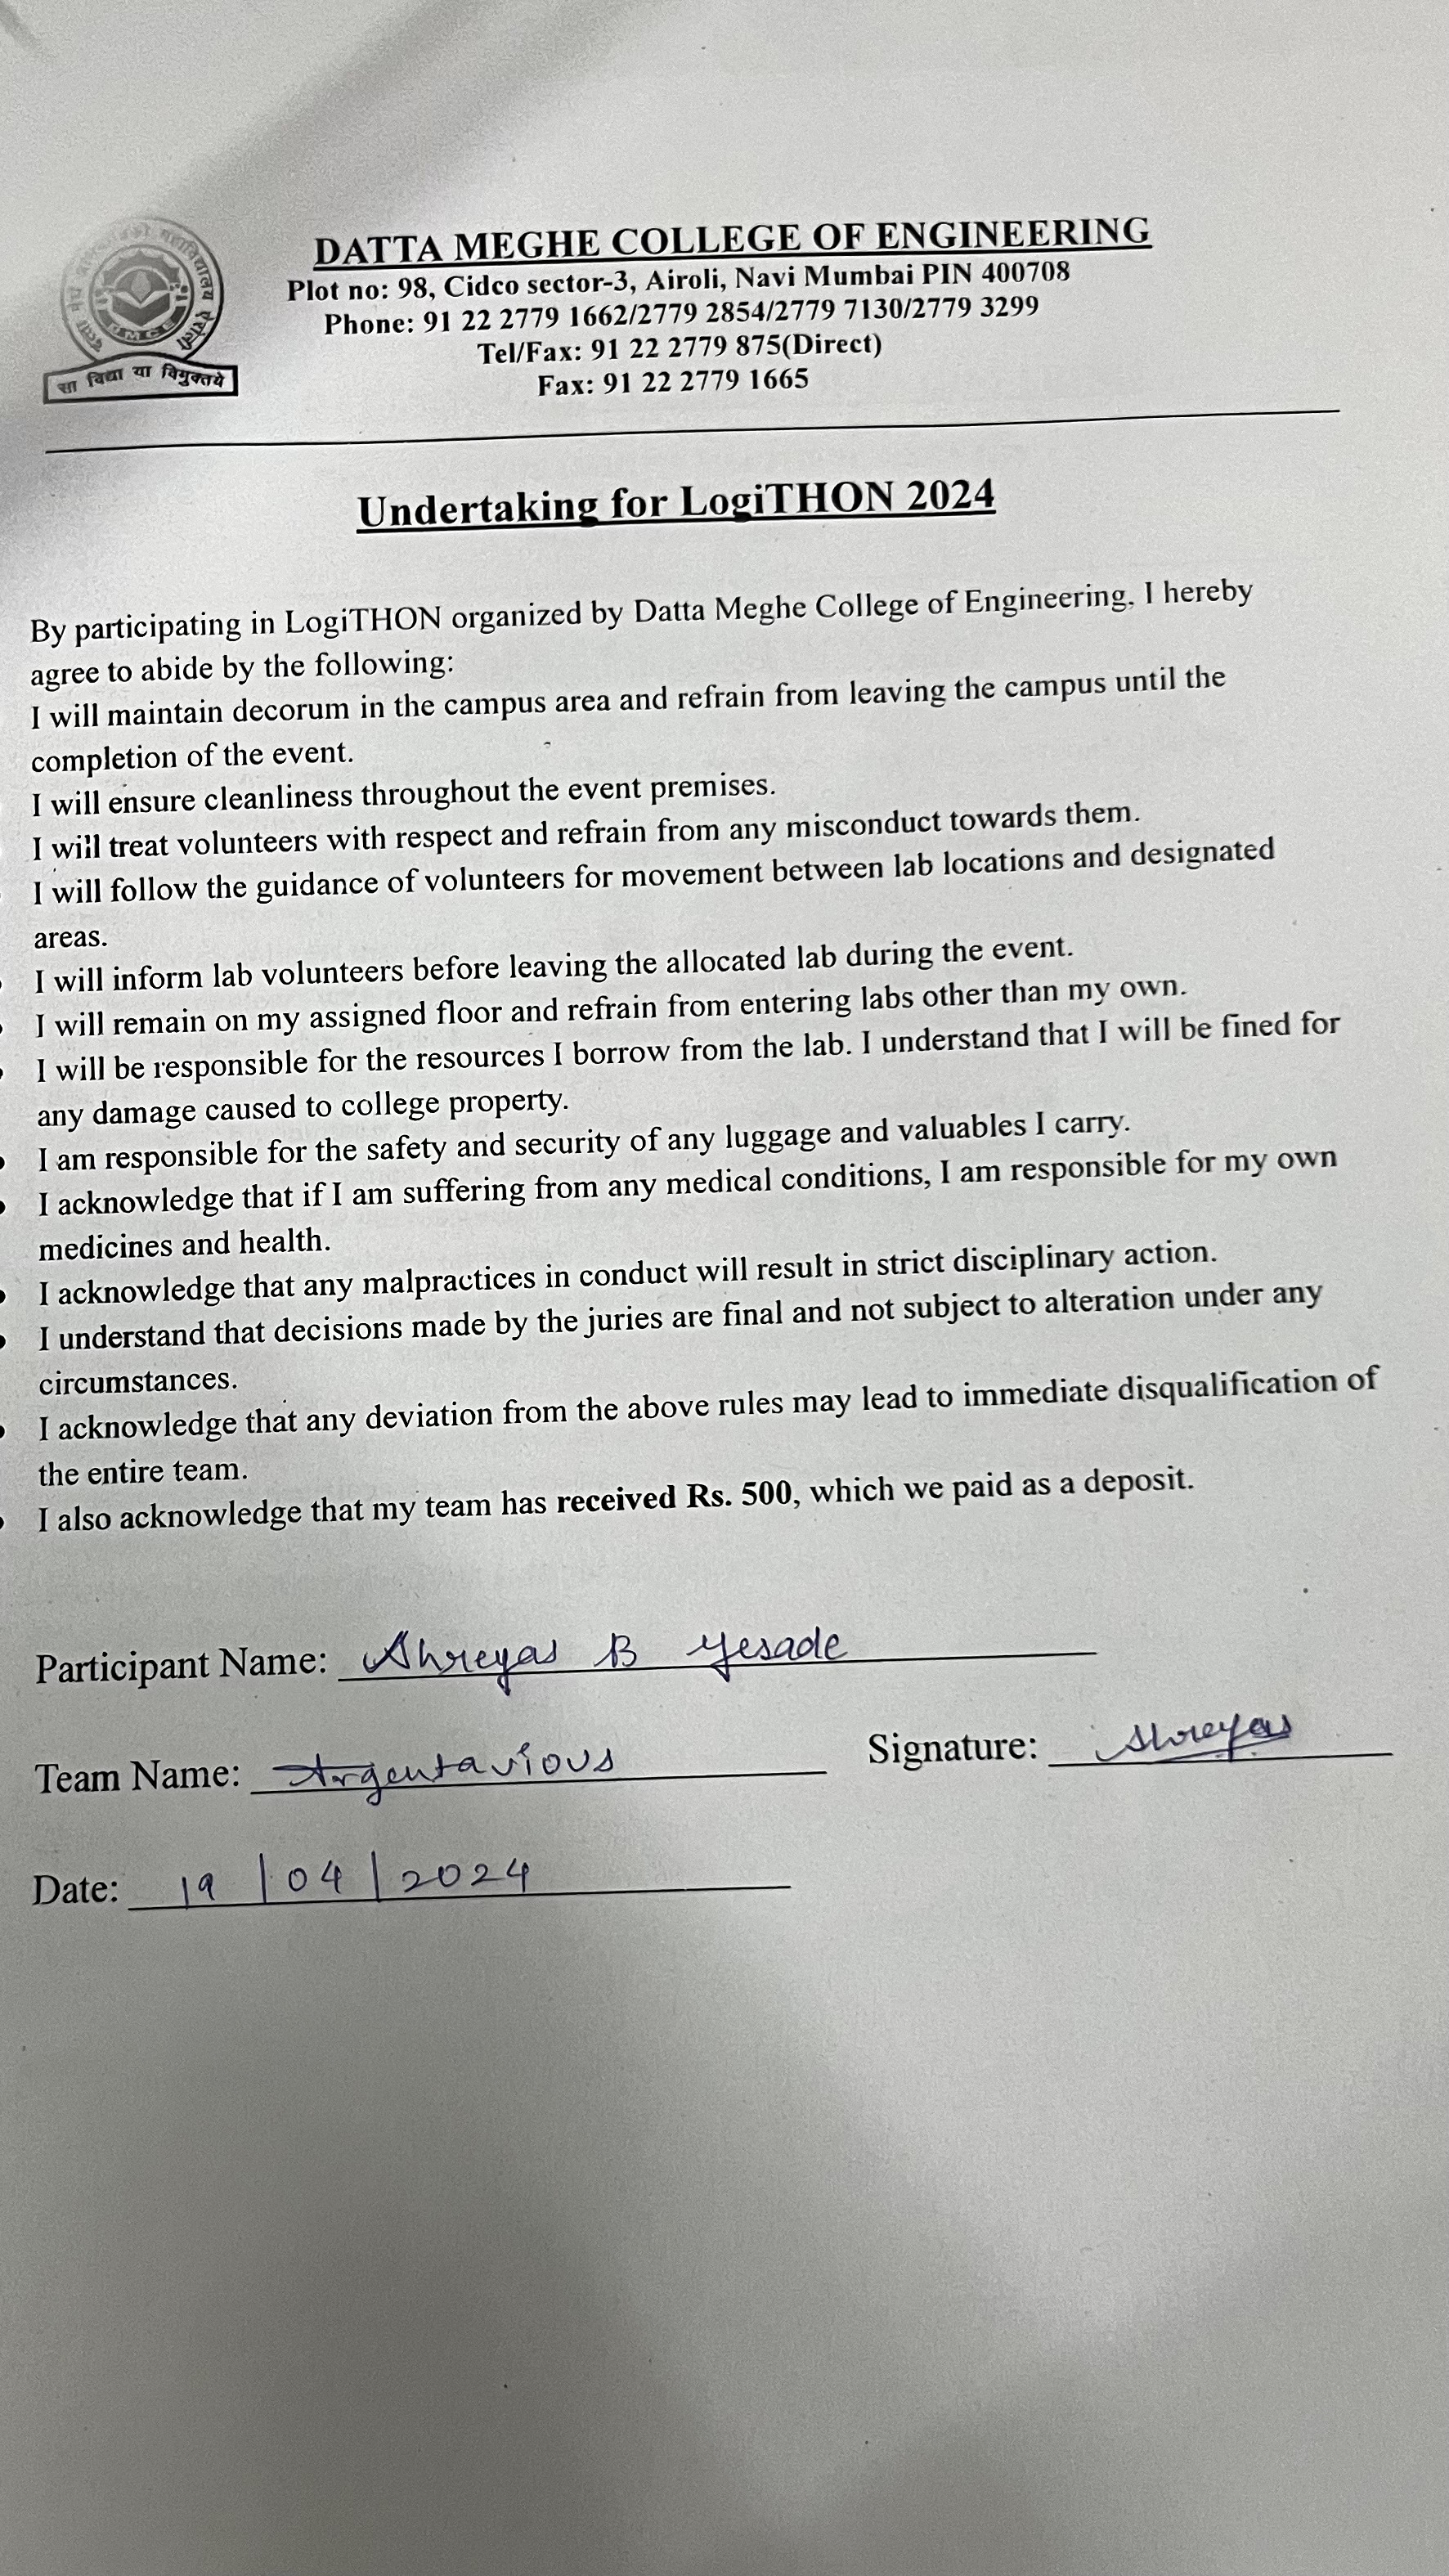 DATTA MEGHE COLLEGE OF ENGINEERING
Plot no: 98, Cidco sector-3, Airoli, Navi Mumbai PIN 400708
Phone: 91 22 2779 1662/2779 2854/2779 7130/2779 3299
Tel/Fax: 91 22 2779 875(Direct)
Fax: 91 22 2779 1665
सा विद्या या विमुक्तये
Undertaking for LogiTHON 2024
By participating in LogiTHON organized by Datta Meghe College of Engineering, I hereby
agree to abide by the following:
I will maintain decorum in the campus area and refrain from leaving the campus until the
completion of the event.
I will ensure cleanliness throughout the event premises.
I will treat volunteers with respect and refrain from any misconduct towards them.
I will follow the guidance of volunteers for movement between lab locations and designated
areas.
I will inform lab volunteers before leaving the allocated lab during the event.
I will remain on my assigned floor and refrain from entering labs other than my own.
I will be responsible for the resources I borrow from the lab. I understand that I will be fined for
any damage caused to college property.
I am responsible for the safety and security of any luggage and valuables I carry.
I acknowledge that if I am suffering from any medical conditions, I am responsible for my own
medicines and health.
I acknowledge that any malpractices in conduct will result in strict disciplinary action.
I understand that decisions made by the juries are final and not subject to alteration under any
circumstances.
I acknowledge that any deviation from the above rules may lead to immediate disqualification of
the entire team.
I also acknowledge that my team has received Rs. 500, which we paid as a deposit.
Participant Name: Shreyas B Yesade
Team Name: Argentavious Signature: Shreyas
Date: 19/04/2024